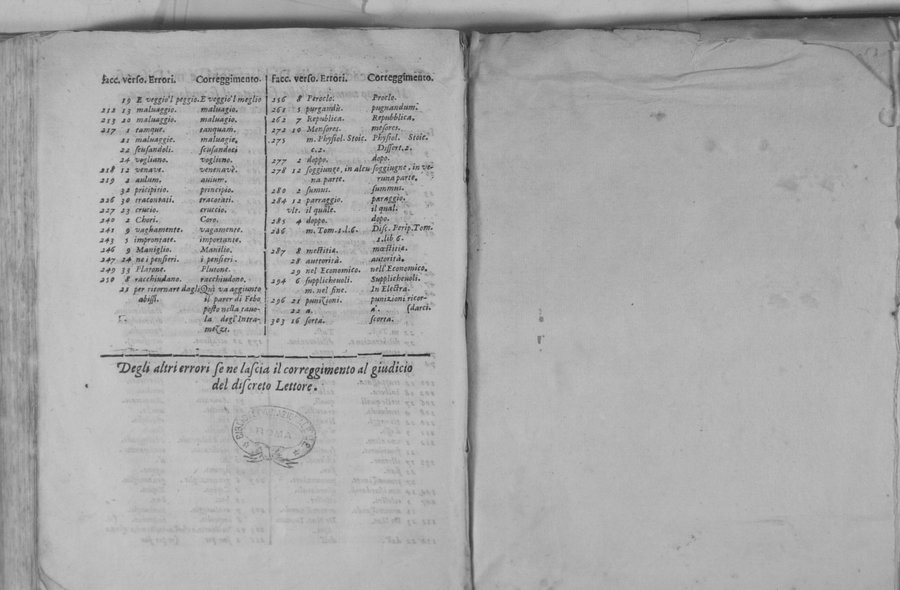 facc. verso. Errori. Correggimento.
19 E veggio'l peggio. E veggio'l meglio
212 13 maluaggio. maluagio.
213 20 maluaggio. maluagio.
217 1 tamque. tanquam.
21 maluaggie. maluagie.
22 scusandoli. scusandoci
24 vogliano. vogliono.
218 12 venave. venenavè.
219 2 aulum. auium.
32 pricipitio. principio.
226 30 tracontati. tracotati.
227 23 crucio. cruccio.
240 2 Chori. Coro.
241 9 vaghamente. vagamente.
243 5 improntate. importante.
246 9 Maniglio. Manilio.
247 24 ne i pensieri. i pensieri.
249 33 Platone. Plutone.
250 8 racchiudano. racchiudono.
25 per ritornare dagli Qui va aggiunto
abissi. il parer di Febo
posto nella tauo-
la degl'Intra-
mezze.
facc. verso. Errori. Correggimento.
256 8 Peroclo. Proclo.
261 5 purgandū. pugnandum.
262 7 Republica. Repubblica.
272 19 Mensores. mesores.
275 m. Physiol. Stoic. Physiol. Stoic.
c.2. Dissert.2.
277 2 doppo. dopo.
278 12 soggiunge, in alcu soggiugne, in ve-
na parte. runa parte.
280 2 sumus. summus.
284 12 parraggio. paraggio.
vlt. il quale. il qual.
285 4 doppo. dopo.
286 m. Tom.1.l.6. Disc. Perip. Tom.
1.lib 6.
287 8 mestitia. mœstitia.
28 autorità. autorità.
29 nel Economico. nell'Economico.
294 6 supplicheuoli. Supplicheuoli.
m. nel fine. In Electra.
296 21 punizioni. punizioni ricor-
22 a. (darci.
303 16 sorta. scorta.
Degli altri errori se ne lascia il correggimento al giudicio
del discreto Lettore.
ROMA